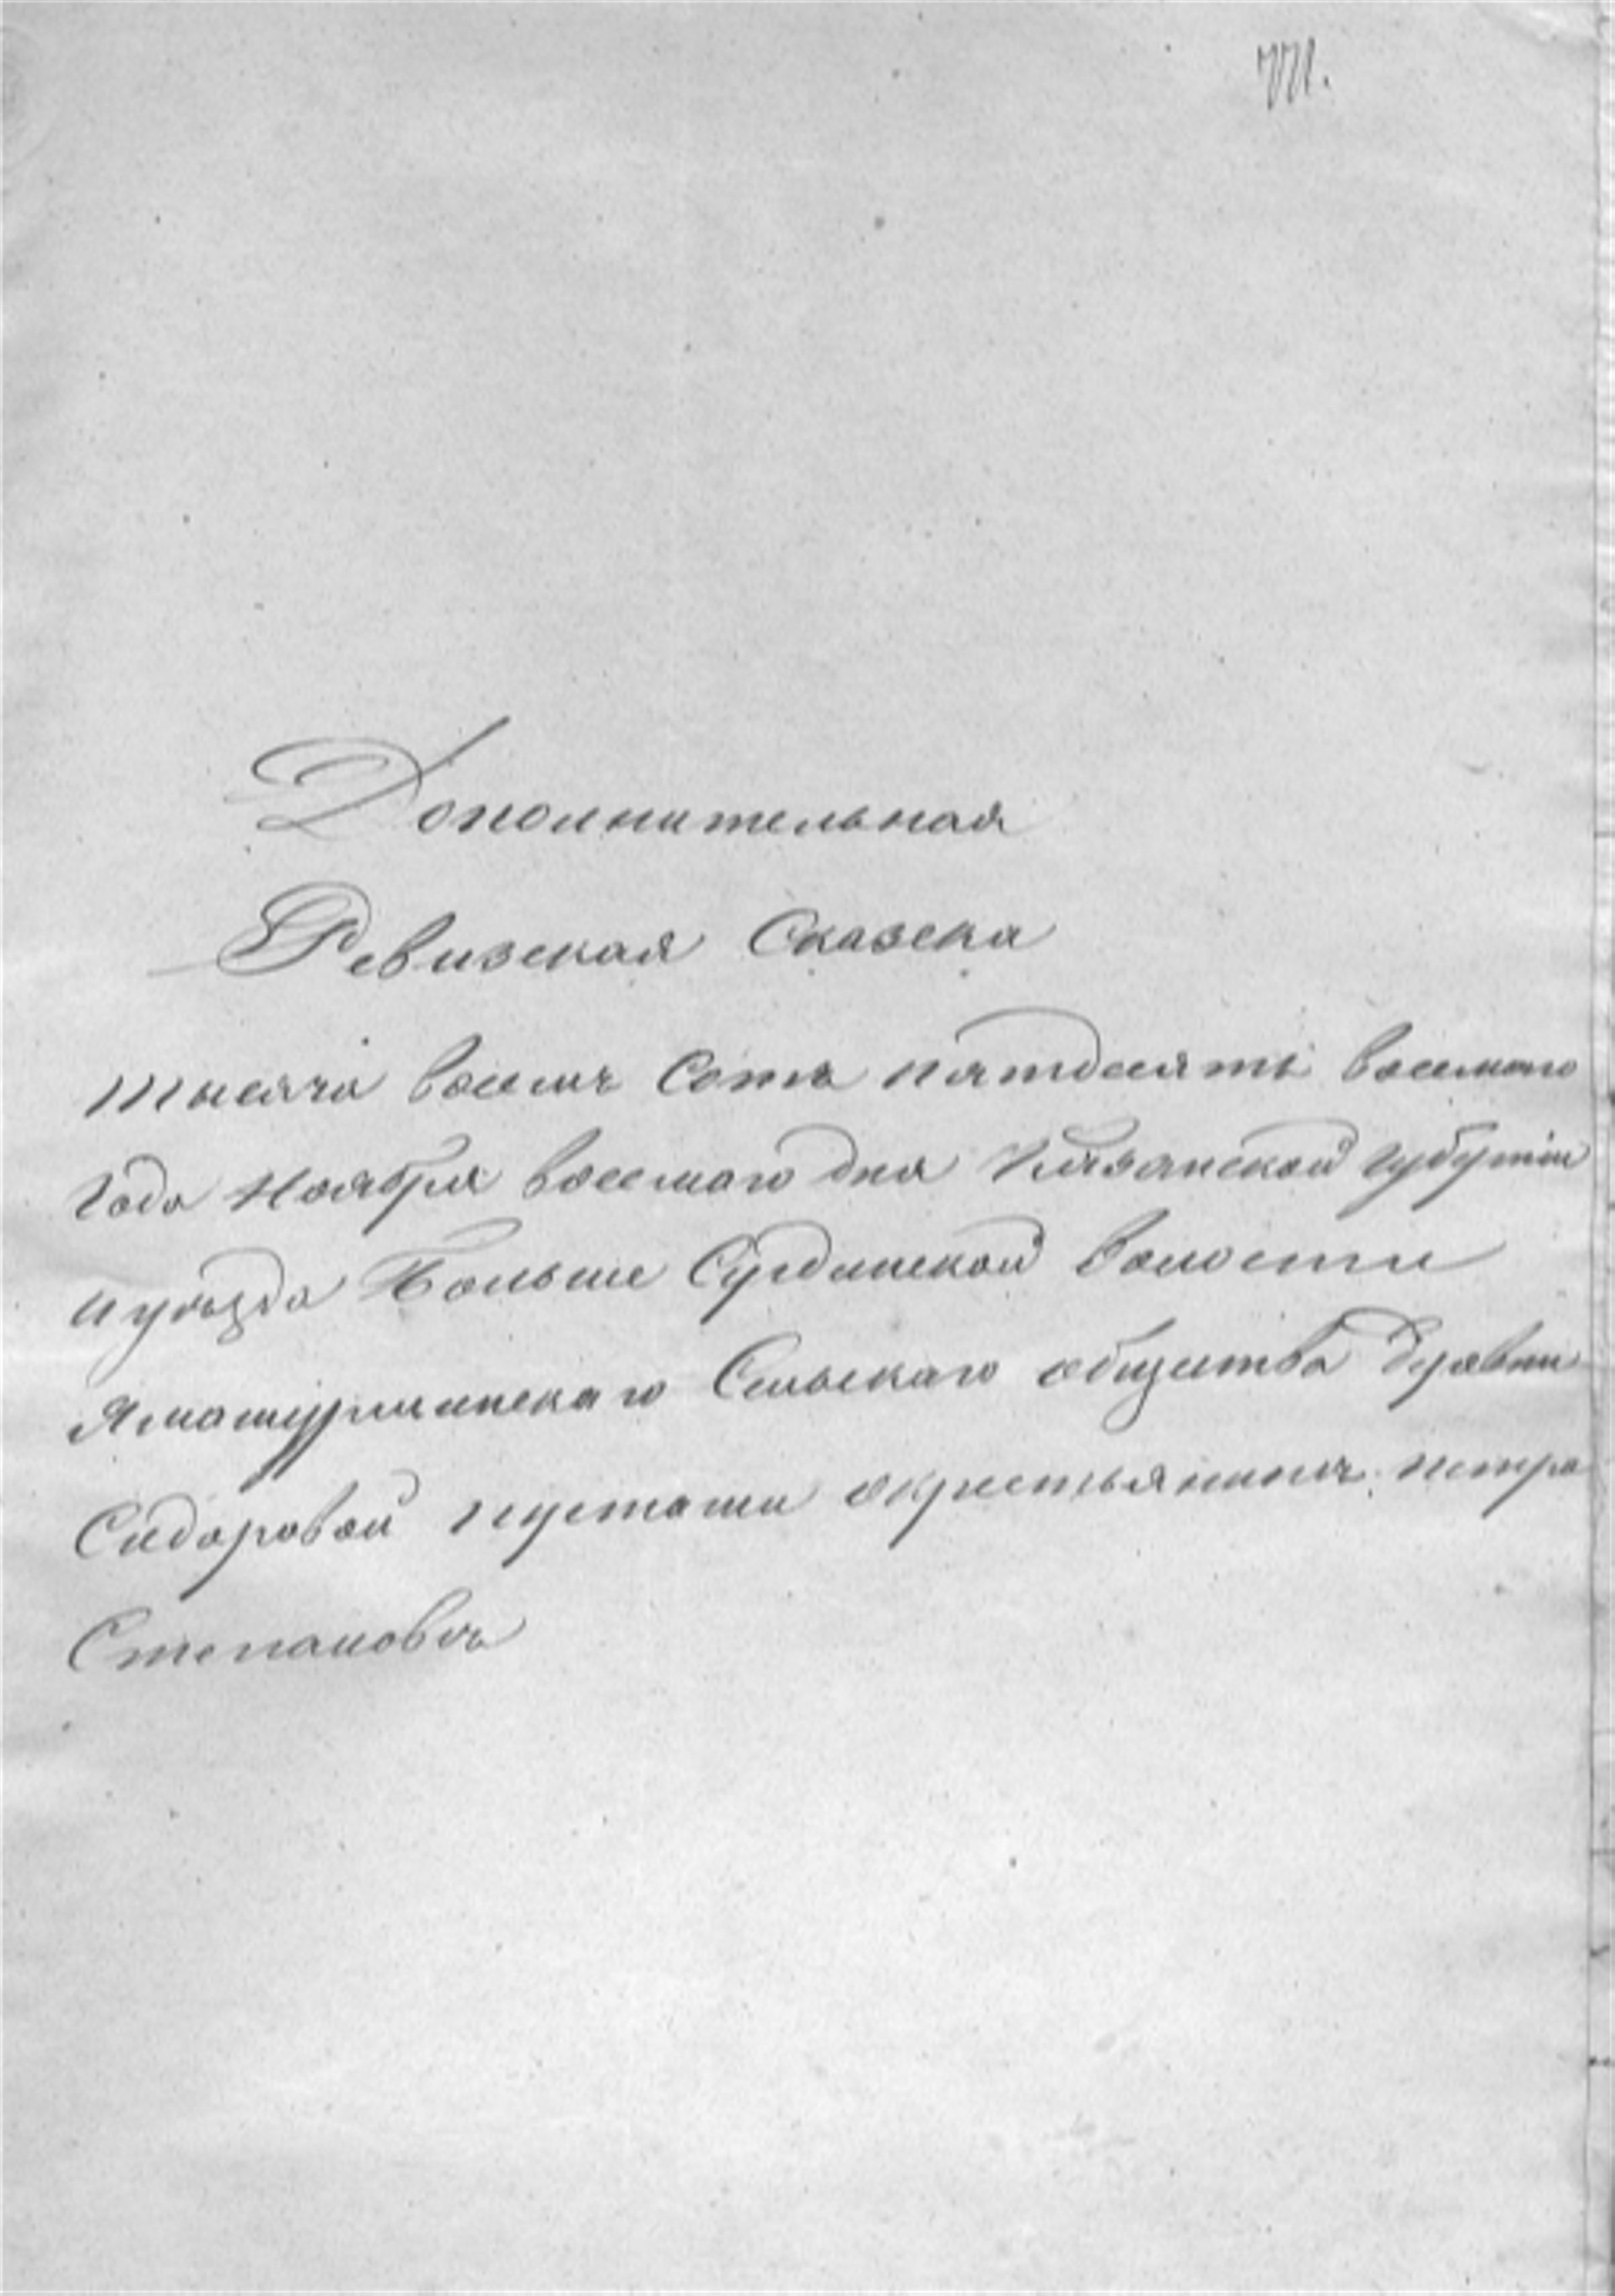 771.
Дополнительная
Ревизская Сказска
тысяча восемь Сотъ пятдесять восемаго
Года Ноября восемаго дня Казанской губерніи
и уѣзда Больше Сурдинской волости
Ямашурминскаго Сельскаго общества деревни
Сидоровой пустоши о крестьянинѣ петра
Степановѣ